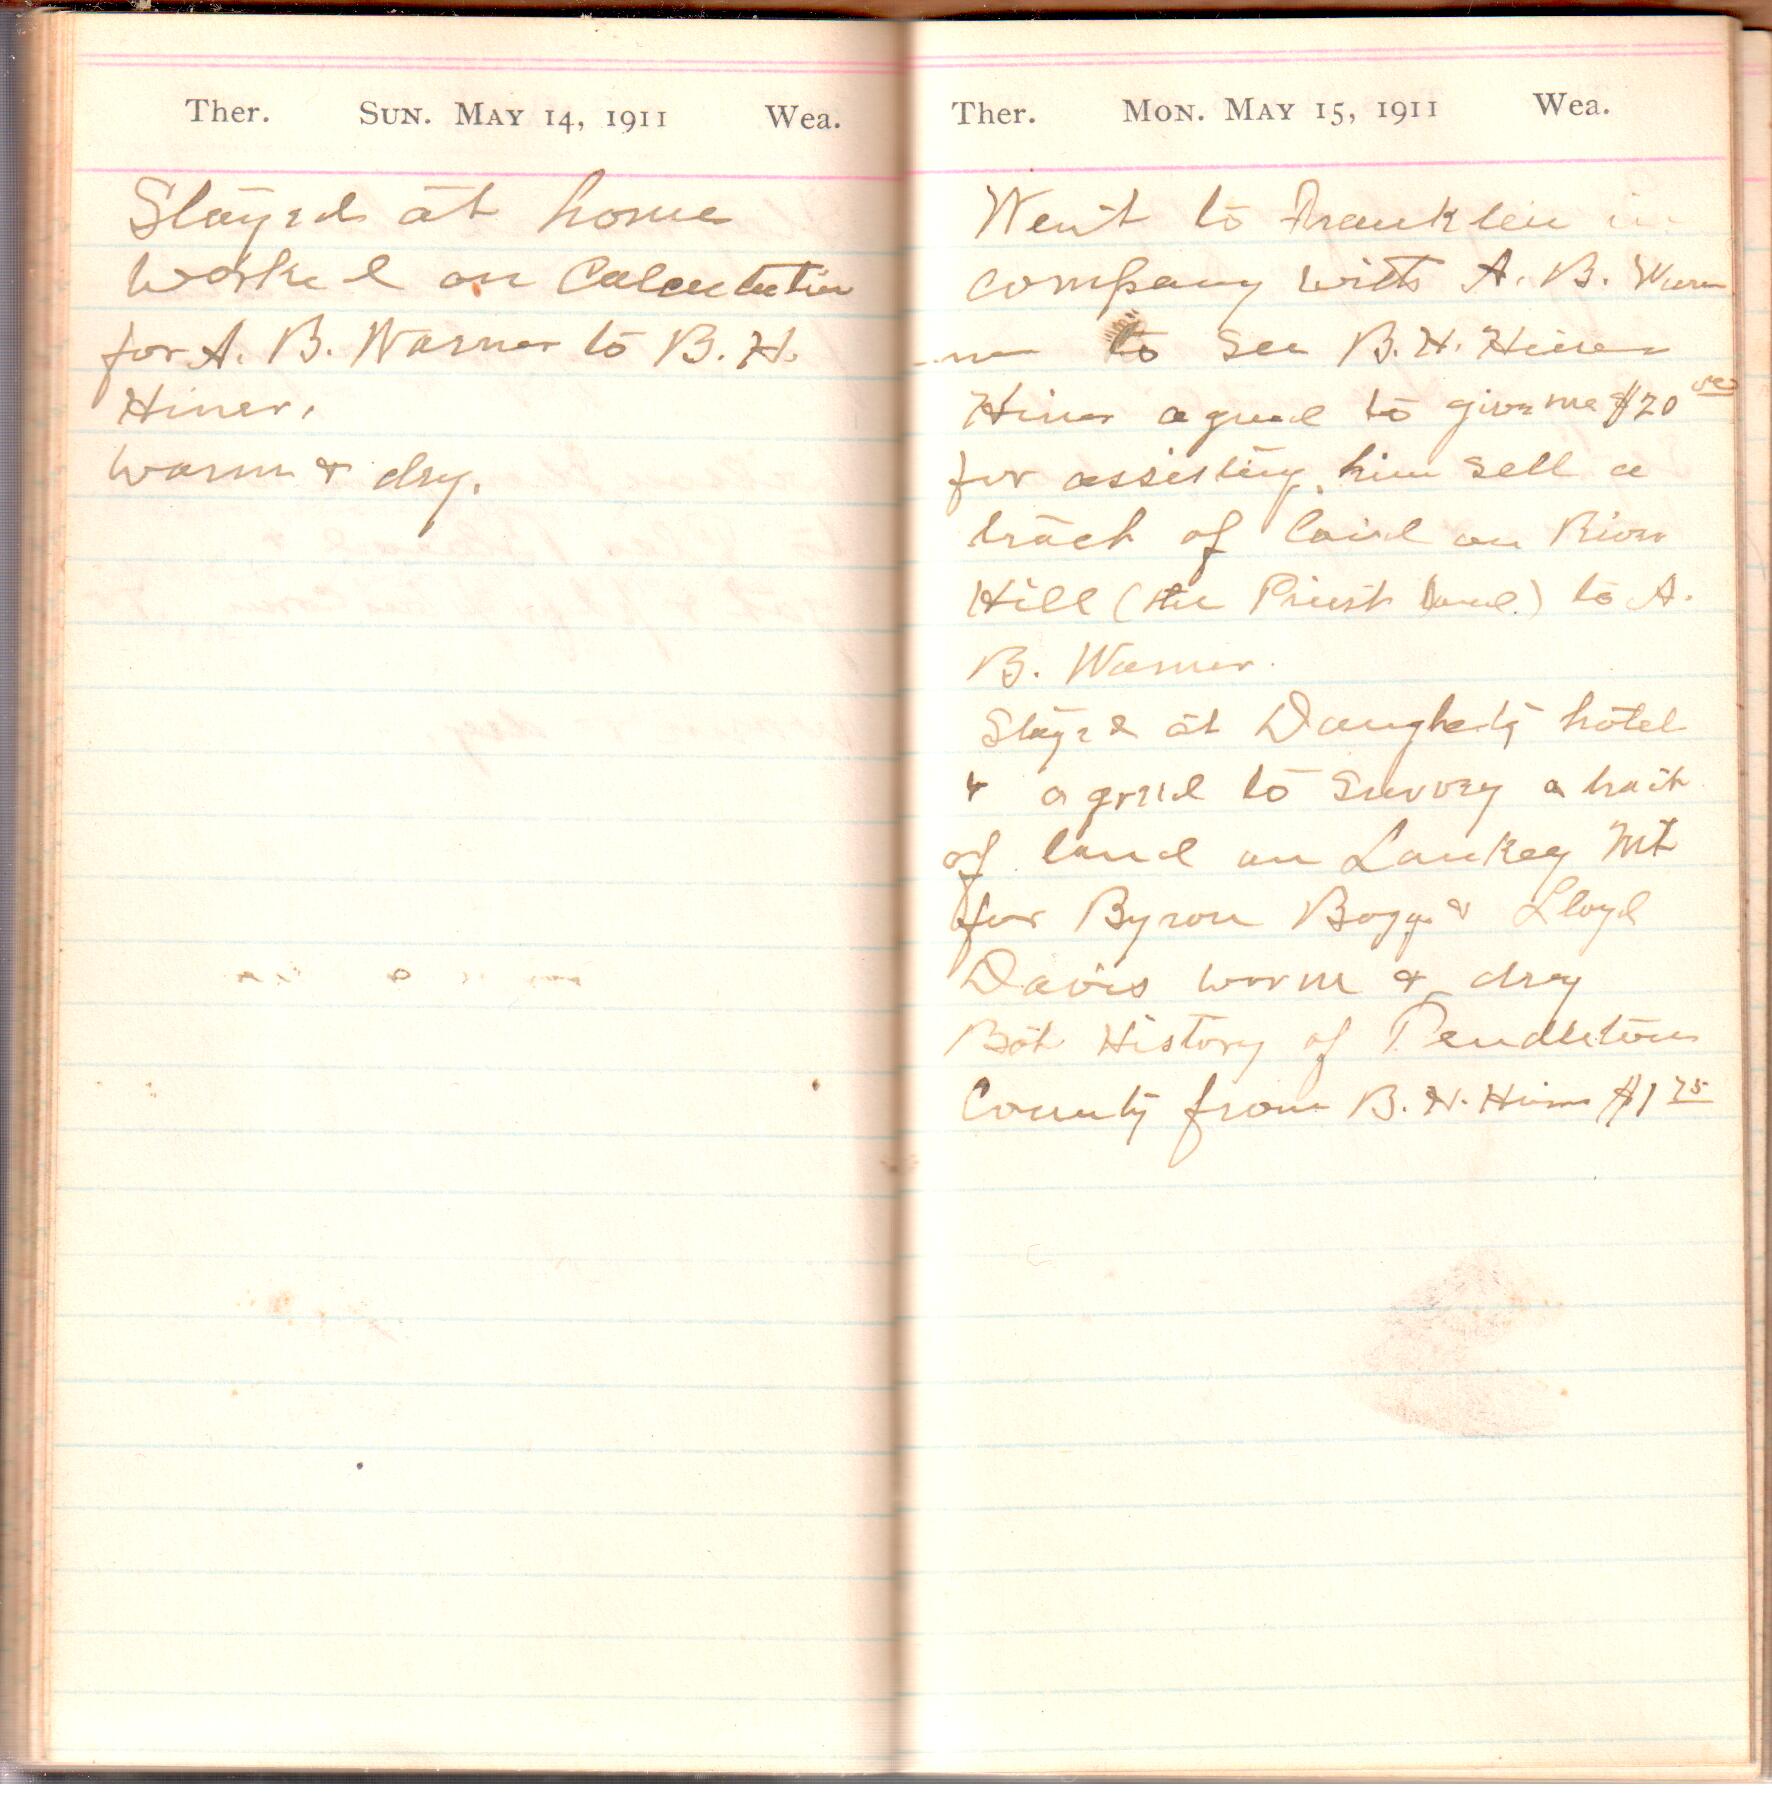 Ther. Sun. May 14, 1911 Wea.
Stayed at home
worked on Calculation
for A. B. Warner to B. H.
Hiner,
warm & dry.
Ther. Mon. May 15, 1911 Wea.
Went to Franklin in
company with A. B. Warn
ner to see B. H. Hiner
Hiner agreed to give me $20 00
for assisting him sell a
track of land on River
Hill (the Priest land) to A.
B. Warner.
Stayed at Daugherty hotel
& agreed to survey a tract
of land on Lankey Mt
for Byron Boggs & Lloyd
Davis warm & dry
Bot History of Pendleton
County from B. H. Hiner $1 75